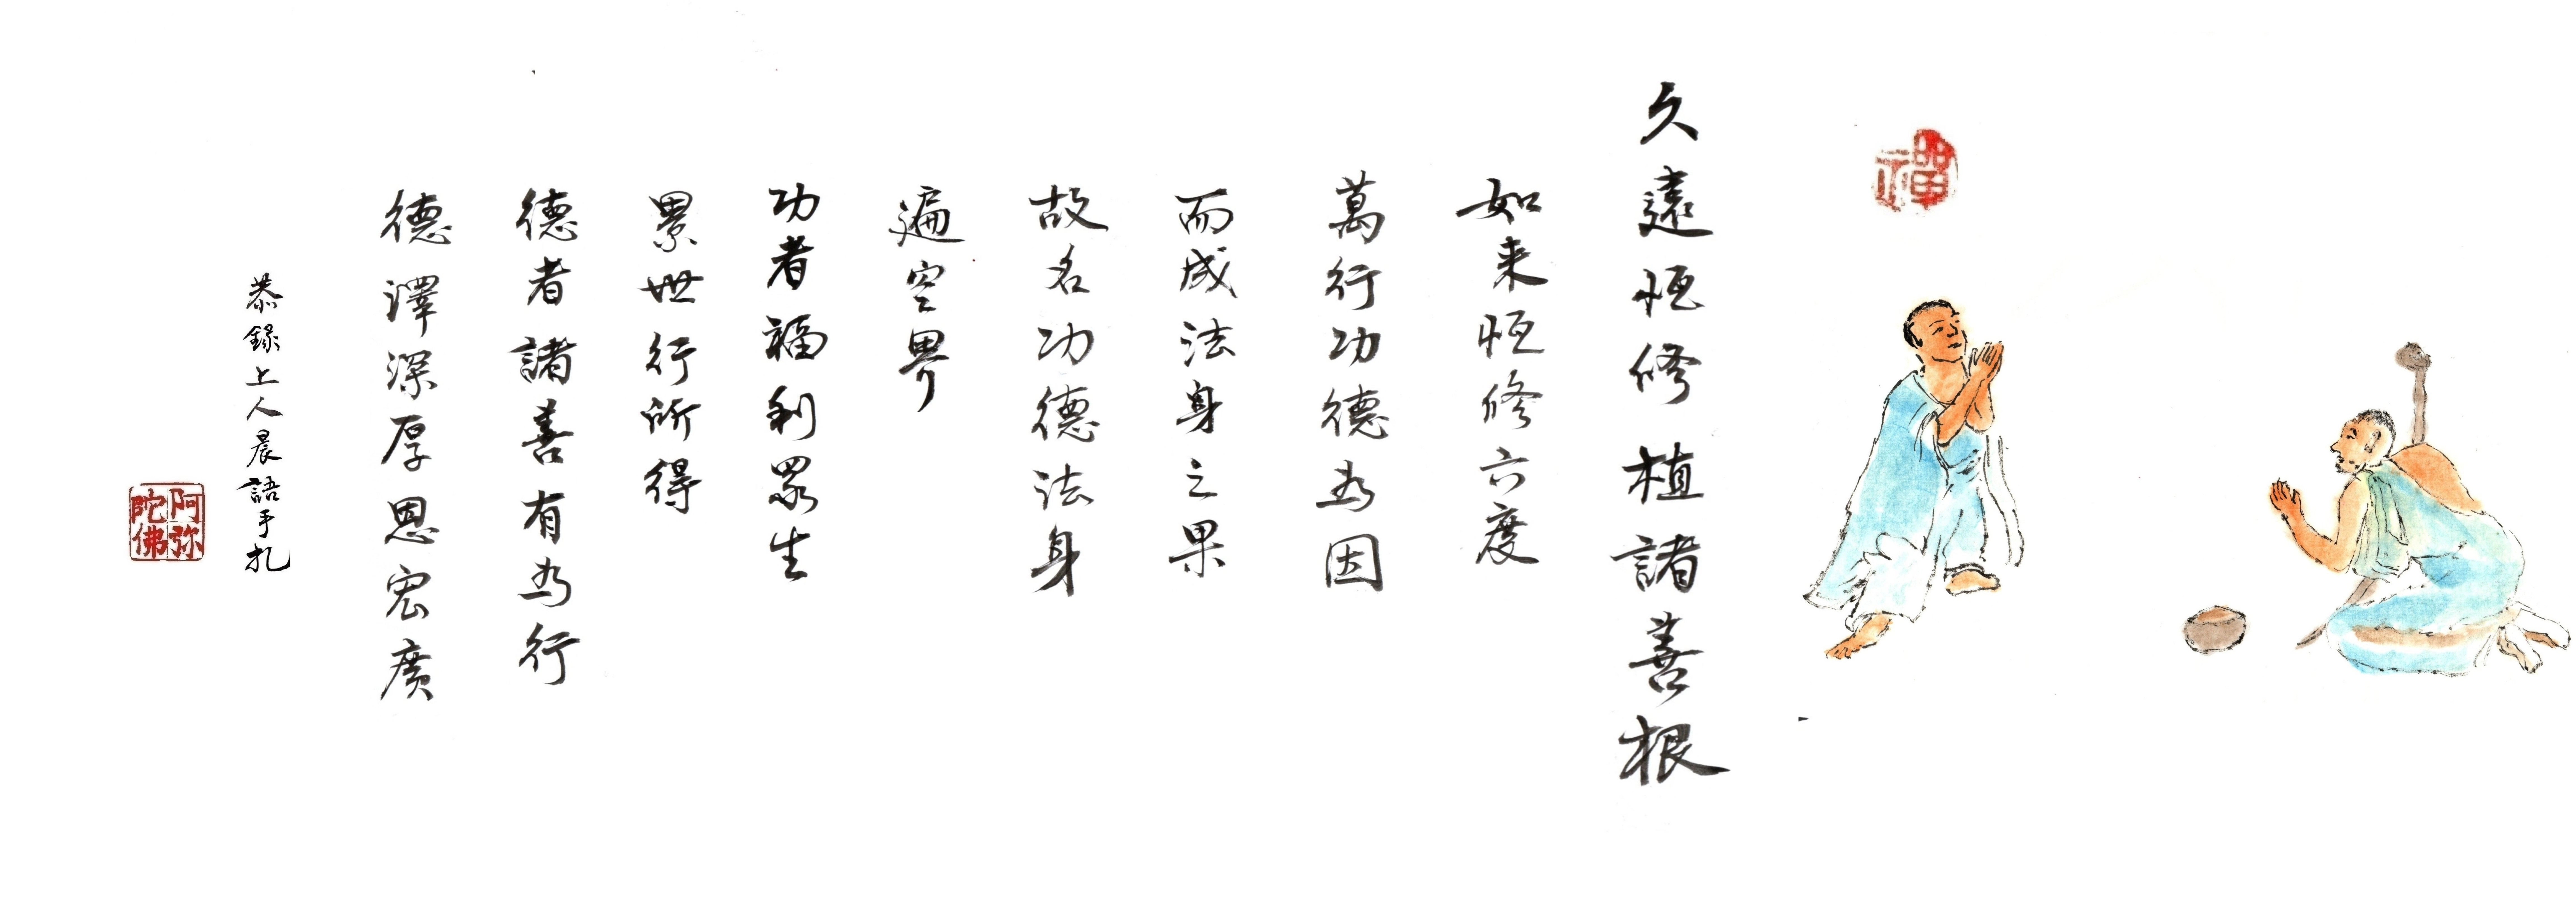 禪
久遠恒修植諸善根
如来恒修六度
萬行功德為因
而成法身之果
故名功德法身
遍空界
功者福利眾生
累世行所得
德者諸善有為行
德澤深厚恩宏廣
恭錄上人晨語手扎
阿弥陀佛